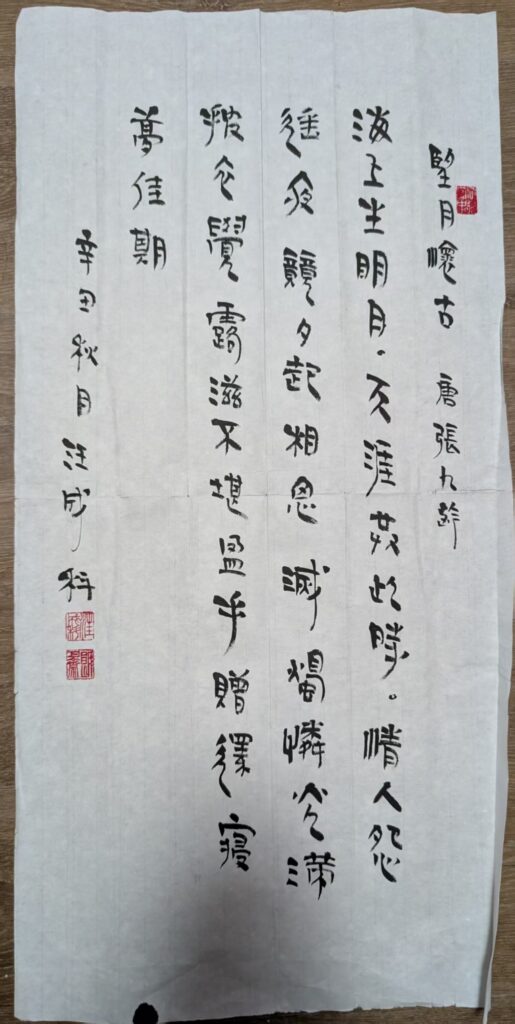 望月懷古 唐 張九齡
海上生明月。天涯共此時。情人怨
遙夜競夕起相思滅燭憐光滿
披衣覺露滋不堪盈手贈還寢
夢佳期
辛丑秋月汪成科